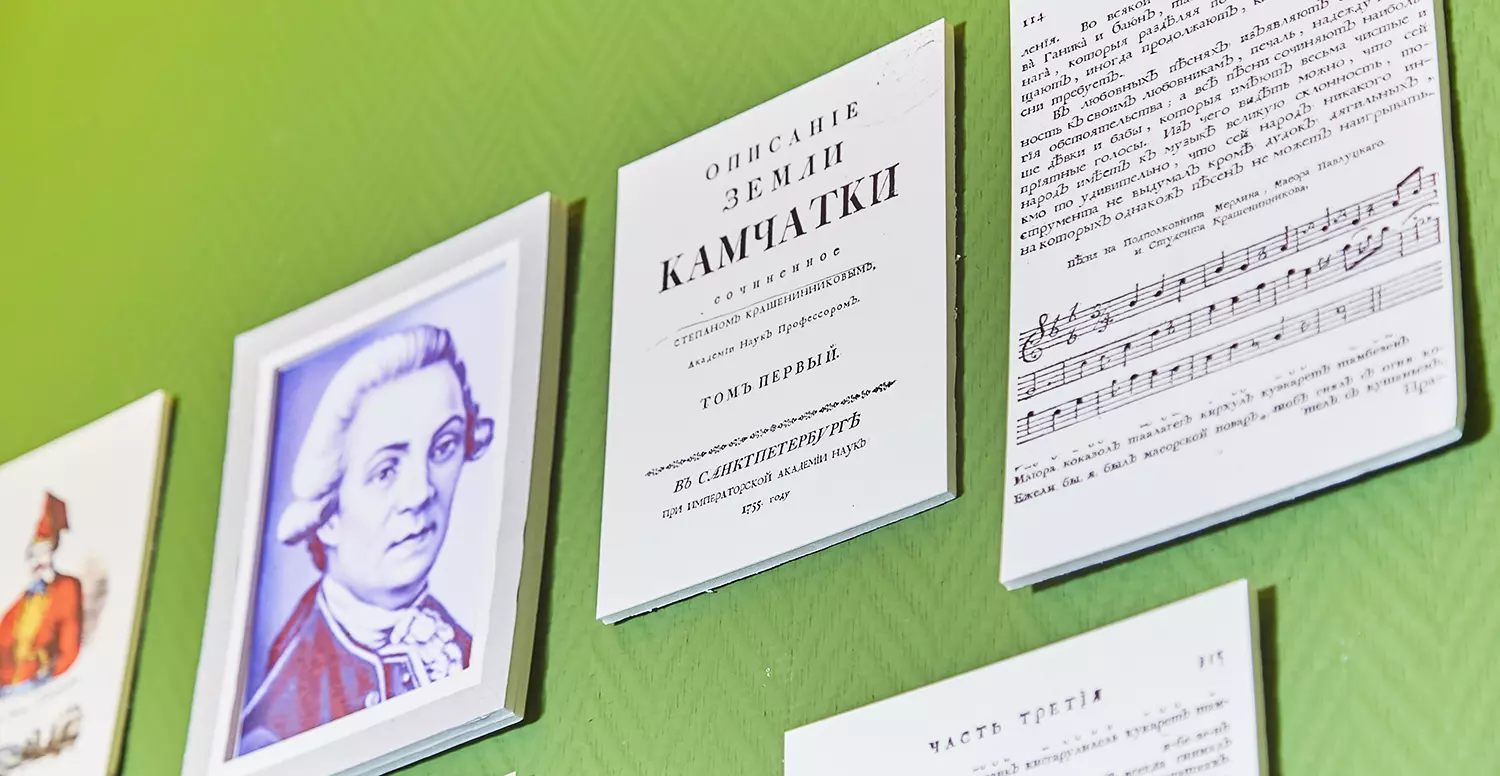 ОПИСАНІЕ
ЗЕМЛИ
КАМЧАТКИ
сочиненное
СТЕПАНОМЪ КРАШЕНИННИКОВЫМЪ,
Академіи Наукъ Профессоромъ.
ТОМЪ ПЕРВЫЙ.
ВЪ САНКТПЕТЕРБУРГѢ
ПРИ ИМПЕРАТОРСКОЙ АКАДЕМІИ НАУКЪ
1755. году
114
ленія. Во всякой
ва̀ Ганика̀ и баю́нъ,
нага̀, которыя раздѣляя
щаютъ, иногда продолжаютъ,
сни требуетъ.
Въ любовныхъ пѣсняхъ изъявляютъ
ность къ своимъ любовникамъ, печаль, надежду
гія обстоятельства; а всѣ пѣсни сочиняютъ наиболь-
ше дѣвки и бабы, которыя имѣютъ весьма чистые и
пріятные голосы. Изъ чего видѣть можно, что сей
народъ имѣетъ къ музыкѣ великую склонность, то-
кмо то удивительно, что сей народъ никакого ин-
струмента не выдумалъ кромѣ дудокъ дягильныхъ,
на которыхъ однакожъ пѣсенъ не можетъ наигрывать.
Пѣснь на Подполковника Мерлина, Маеора Павлуцкаго.
и Студента Крашенинникова.
Маіора коказолъ таалагегъ киррхулъ кувкаретъ тамбезенъ
Ежели бы я былъ маеорской поваръ, снялъ съ огня ко-
телъ съ кушаньемъ.
Пра-
115
ЧАСТЬ ТРЕТІЯ
кукаретъ там-